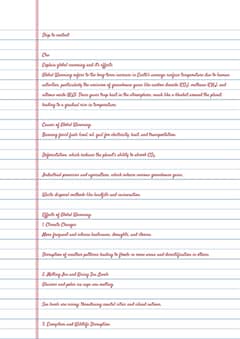 Skip to content
Cho
Explain global warming and it's effects
Global Warming refers to the long-term increase in Earth's average surface temperature due to human
activities, particularly the emission of greenhouse gases like carbon dioxide (CO₂), methane (CH₄), and
nitrous oxide (N₂O). These gases trap heat in the atmosphere, much like a blanket around the planet,
leading to a gradual rise in temperature.
Causes of Global Warming:
Burning fossil fuels (coal, oil, gas) for electricity, heat, and transportation.
Deforestation, which reduces the planet's ability to absorb CO₂.
Industrial processes and agriculture, which release various greenhouse gases.
Waste disposal methods like landfills and incineration.
Effects of Global Warming:
1. Climate Changes
More frequent and intense heatwaves, droughts, and storms.
Disruption of weather patterns, leading to floods in some areas and desertification in others.
2. Melting Ice and Rising Sea Levels
Glaciers and polar ice caps are melting.
Sea levels are rising, threatening coastal cities and island nations.
3. Ecosystem and Wildlife Disruption